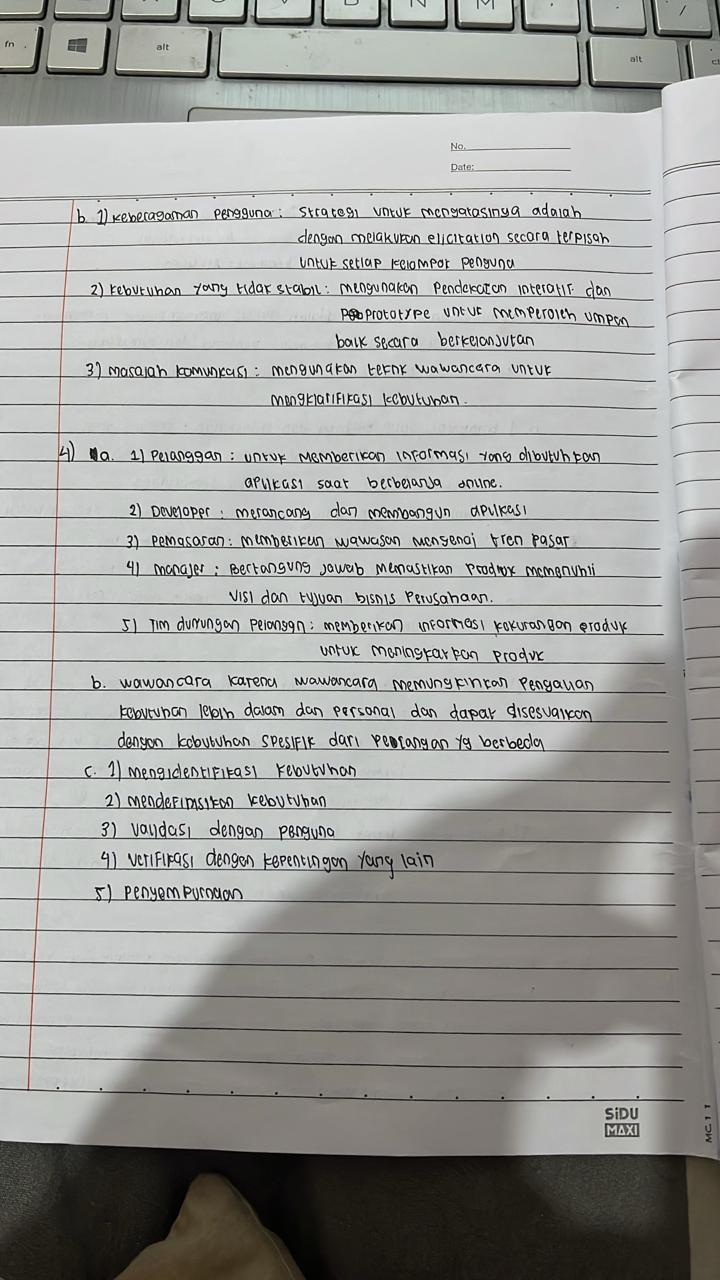 fn
alt
alt
No.
Date:
b. 1) keberagaman pengguna : strategi untuk mengatasinya adalah
dengan melakukan elicitation secara terpisah
untuk setiap kelompok penguna
2) kebutuhan yang tidak stabil : mengunakan Pendekatan interatif dan
prototype untuk memperoleh umpan
balik secara berkelanjutan
3) masalah komunikasi : mengunakan teknk wawancara untuk
mengklarifikasi kebutuhan.
4) a. 1) Pelanggan : untuk memberikan informasi yang dibutuhkan
aplikasi saat berbelanja online.
2) Developer : merancang dan membangun aplikasi
3) Pemasaran : memberikan wawasan mengenai tren pasar
4) manajer : Bertangung jawab memastikan Prodrok memenuhi
visi dan tujuan bisnis Perusahaan.
5) Tim dukungan Pelangan : memberikan informasi kekurangan produk
untuk meningkatkan produk
b. wawancara karena wawancara memungkinkan Pengalian
kebutuhan lebih dalam dan personal dan dapat disesuaikan
dengan kebutuhan spesifik dari pelangan yg berbeda
c. 1) mengidentifikasi kebutuhan
2) mendefinisikan kebutuhan
3) validasi dengan penguna
4) verifikasi dengan kepentingan yang lain
5) penyempurnaan
SiDU
MAXI